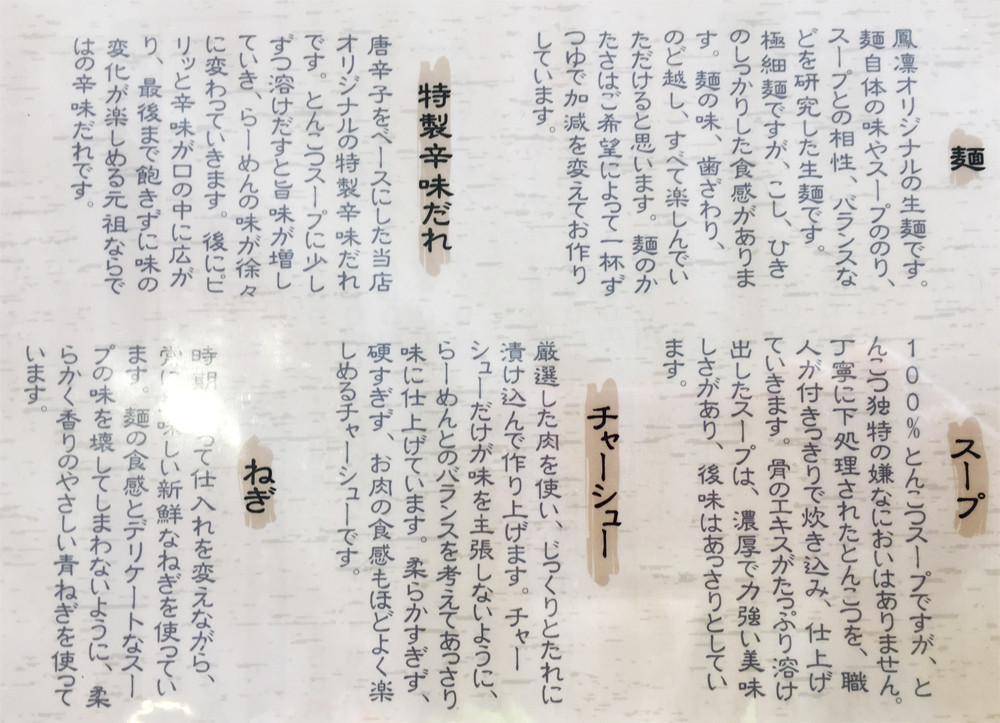 麺
鳳凛オリジナルの生麺です。
麺自体の味やスープののり、
スープとの相性、バランスな
どを研究した生麺です。
極細麺ですが、こし、ひき
のしっかりした食感がありま
す。麺の味、歯ざわり、
のど越し、すべて楽しんでい
ただけると思います。麺のか
たさはご希望によって一杯ず
つゆで加減を変えてお作り
しています。
特製辛味だれ
唐辛子をベースにした当店
オリジナルの特製辛味だれ
です。とんこつスープに少し
ずつ溶けだすと旨味が増し
ていき、らーめんの味が徐々
に変わっていきます。後にピ
リッと辛味が口の中に広が
り、最後まで飽きずに味の
変化が楽しめる元祖ならで
はの辛味だれです。
スープ
100%とんこつスープですが、と
んこつ独特の嫌なにおいはありません。
丁寧に下処理されたとんこつを、職
人が付きっきりで炊き込み、仕上げ
ていきます。骨のエキスがたっぷり溶け
出したスープは、濃厚で力強い美味
しさがあり、後味はあっさりとしてい
ます。
チャーシュー
厳選した肉を使い、じっくりとたれに
漬け込んで作り上げます。チャー
シューだけが味を主張しないように、
らーめんとのバランスを考えてあっさり
味に仕上げています。柔らかすぎず、
硬すぎず、お肉の食感もほどよく楽
しめるチャーシューです。
ねぎ
時期 って仕入れを変えながら、
味しい新鮮なねぎを使ってい
ます。麺の食感とデリケートなスー
プの味を壊してしまわないように、柔
らかく香りのやさしい青ねぎを使って
います。